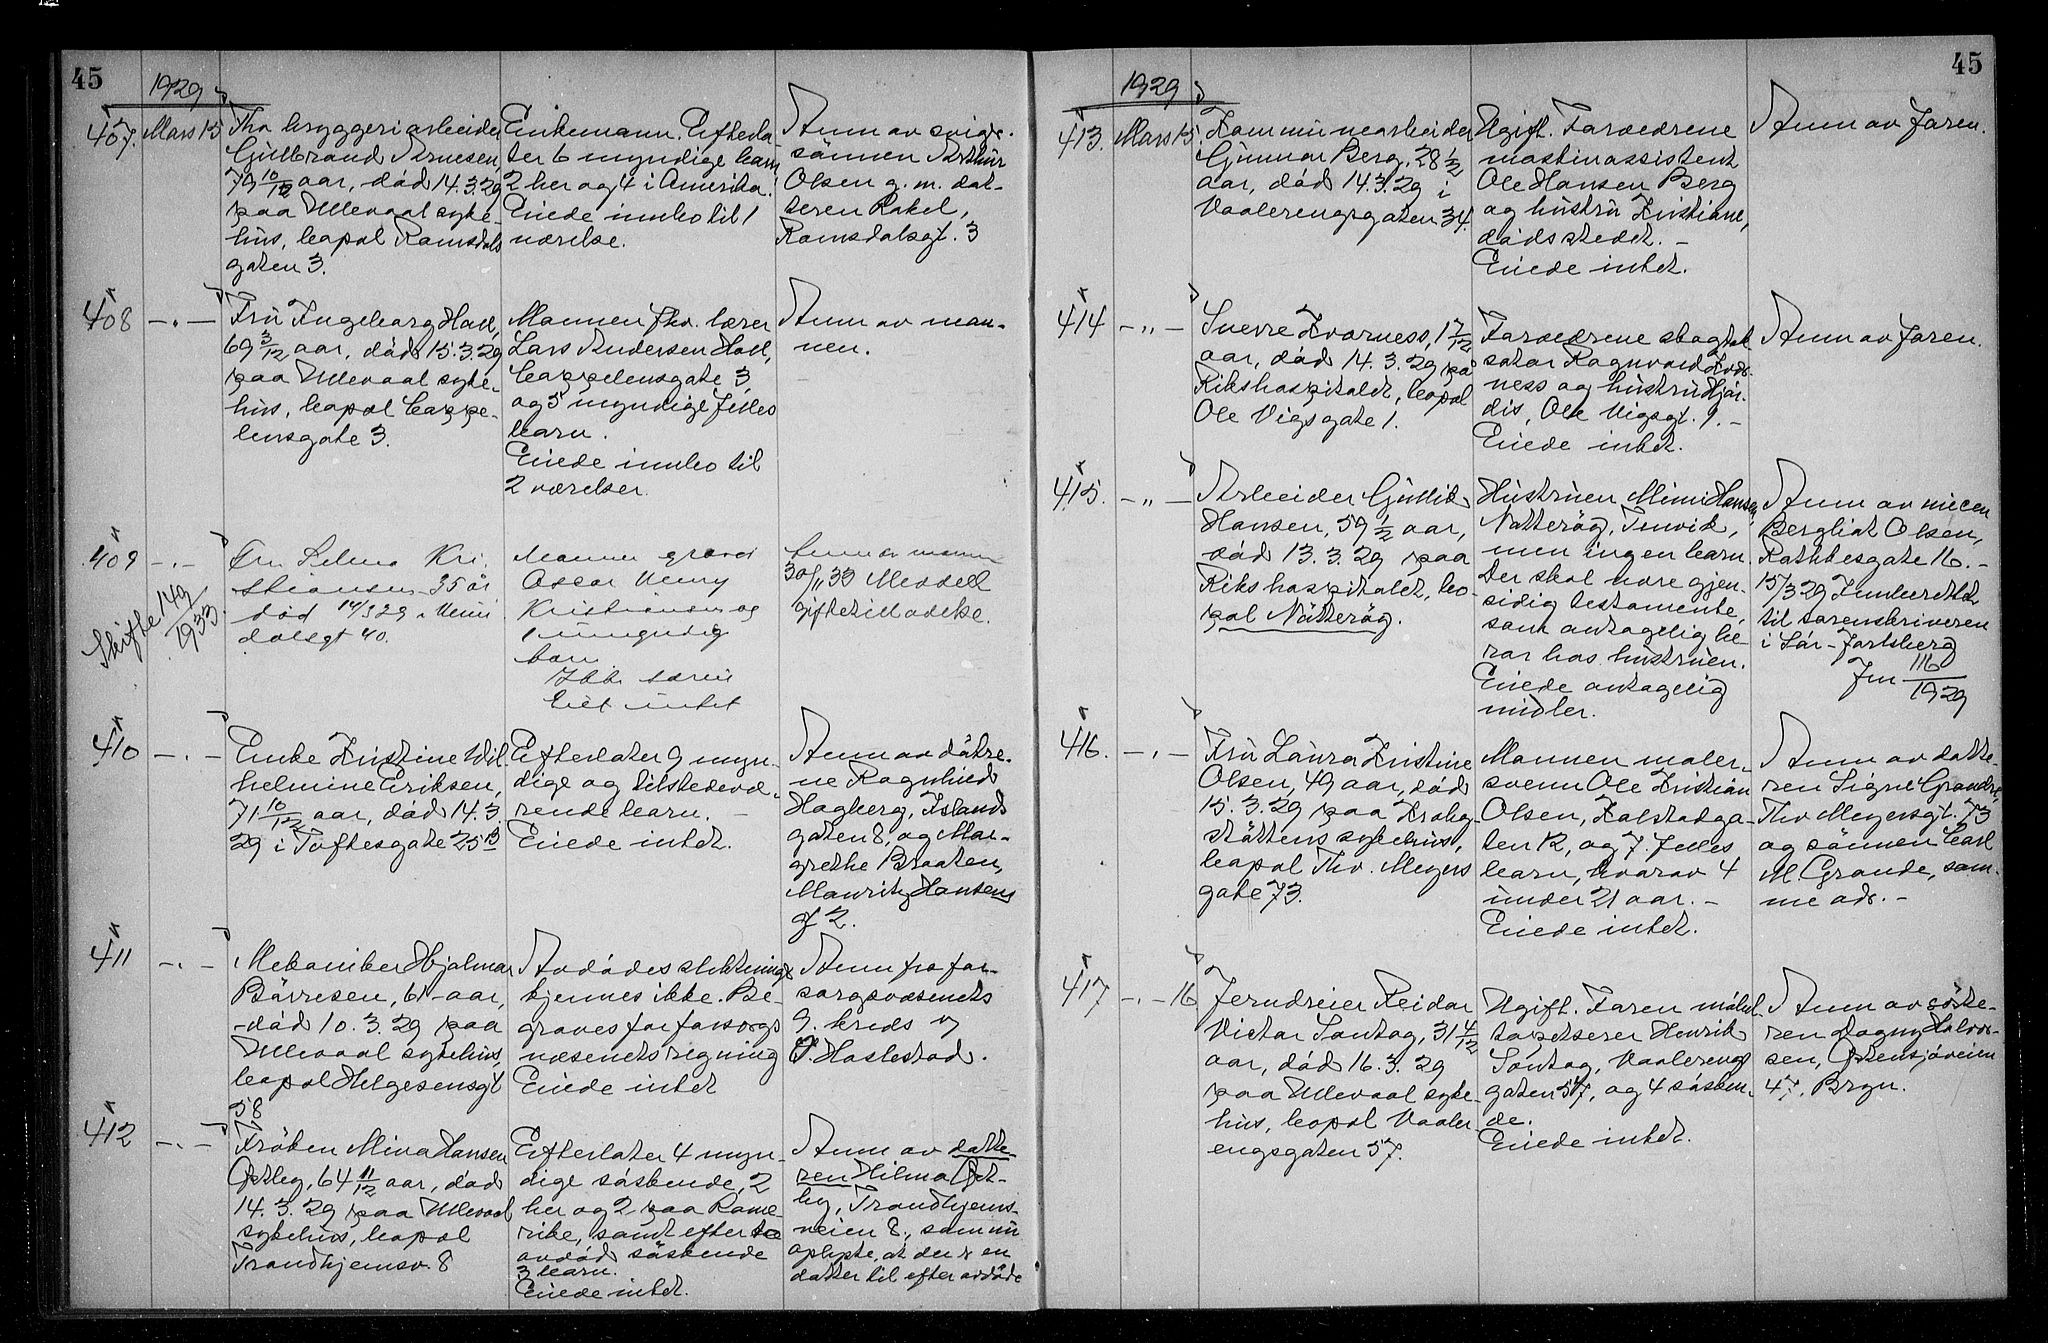 45
1929
407. Mars 15
Fhv bryggeriarbeider
Gulbrand Arnesen,
79 10/12 aar, död 14.3.29
paa Ullevaal syke-
hus, bopæl Romsdals
gaten 3.
Enkemann. Efterla-
ter 6 myndige barn
2 her og 4 i Amerika.
Eiede innbo til 1
værelse.
Anm av sviger-
sönnen Arthur
Olsen g.m. dat-
teren Rakel,
Romsdalsgt. 3
408 -"-
Fru Ingeborg Holl,
69 3/12 aar, död 15.3.29
paa Ullevaal syke-
hus, bopæl Cappe-
lensgate 3.
Mannen fhv. lærer
Lars Andersen Holl,
Cappelensgate 3,
og 5 myndige felles
barn.
Eiede innbo til
2 værelser.
Anm av man-
nen.
409 -"-
Skifte 149/1933.
Fru Selma Kri-
stiansen 35 år
död 14/3 29
dalsgt 40.
Mannen
Oscar Henry
Kristiansen og
1 umyndig
barn
Eiet intet
Anm av mannen
30/11 33 Meddelt
giftetillatelse.
410 -"-
Enke Kristine Wil
helmine Eriksen,
71 10/12 aar, död 14.3.
29 i Toftesgate 25 B
Efterlater 9 myn-
dige og tilstedevæ-
rende barn. -
Eiede intet.
Anm av dötre-
ne Ragnhild
Hagberg, Islands
gaten 8, og Mar-
grethe Braaten,
Mauritz Hansens
gt 2.
411 -"-
Mekaniker Hjalmar
Börresen, 61 - aar,
död 10.3.29 paa
Ullevaal sykehus,
bopæl Helgesensgt
58
Avdödes slektninge
kjennes ikke. Be-
graves for forsorgs
væsenets regning
Eiede intet
Anm fra for-
sorgsvæsenets
9. kreds v
Haslestad.
412 -"-
Fröken Mina Hansen
Östby, 64 11/12 aar, död
14.3.29 paa Ullevaal
sykehus, bopæl
Trondhjemsv. 8
Efterlater 4 myn-
dige söskende, 2
her og 2 paa Rome
rike, samt efter to
avdöd söskende
3 barn.
Eiede intet.
Anm av datte-
ren Hilma Öst-
by, Trondhjems-
veien 8, som nu
oplyste, at der er en
datter til efter avdöde
45
1929
413. Mars 15.
Kommunearbeider
Gunnar Berg, 28 1/2
aar, död 14.3.29 i
Vaalerengsgaten 34.
Ugift. Forældrene
maskinassistent
Ole Hansen Berg
og hustru Kristiane,
dödsstedet. -
Eiede intet.
Anm av faren.
414 -"-
Sverre Kvarness, 1 7/12
aar, död 14.3.29 paa
Rikshospitalet, bopæl
Ole Vigs gate 1.
Forældrene skogtak-
sator Ragnvald Kvar-
ness og hustru Hjör-
dis, Ole Vigsgt. 1. -
Eiede intet.
Anm av faren.
415. -"-
Arbeider Gullik
Hansen, 59 1/2 aar,
död 13.3.29 paa
Rikshospitalet, bo-
pæl Nötteröy.
Hustruen Mimi Hansen,
Nötteröy, Tenvik,
men ingen barn
Der skal være gjen-
sidig testamente,
som antagelig be-
ror hos hustruen.
Eiede antagelig
midler.
Anm av niecen
Bergliot Olsen,
Rathkesgate 16. -
15/3 29 Innberettet
til sorenskriveren
i Sör-Jarlsberg
Jnr 116/1929
416. -"-
Fru Laura Kristine
Olsen, 49 aar, död
15.3.29 paa Krohg-
stöttens sykehus,
bopæl Thv. Meyers
gate 73.
Mannen maler-
svenn Ole Kristian
Olsen, Kalstadga-
ten 12, og 7 felles
barn, hvorav 4
under 21 aar. -
Eiede intet.
Anm av datte-
ren Signe Grande,
Thv Meyersgt. 73
og sönnen Carl
M. Grande, sam-
me adr. -
417 -"- 16
Jerndreier Reidar
Victor Söntag, 31 4/12
aar, död 16.3.29
paa Ullevaal syke-
hus, bopæl Vaaler-
engsgaten 57.
Ugift. Faren möbel-
tapetserer Henrik
Söntag, Vaalerengs
gaten 57, og 4 sösken-
de.
Eiede intet.
Anm av söste-
ren Dagny Halvor-
sen, Östensjöveien
47, Bryn.